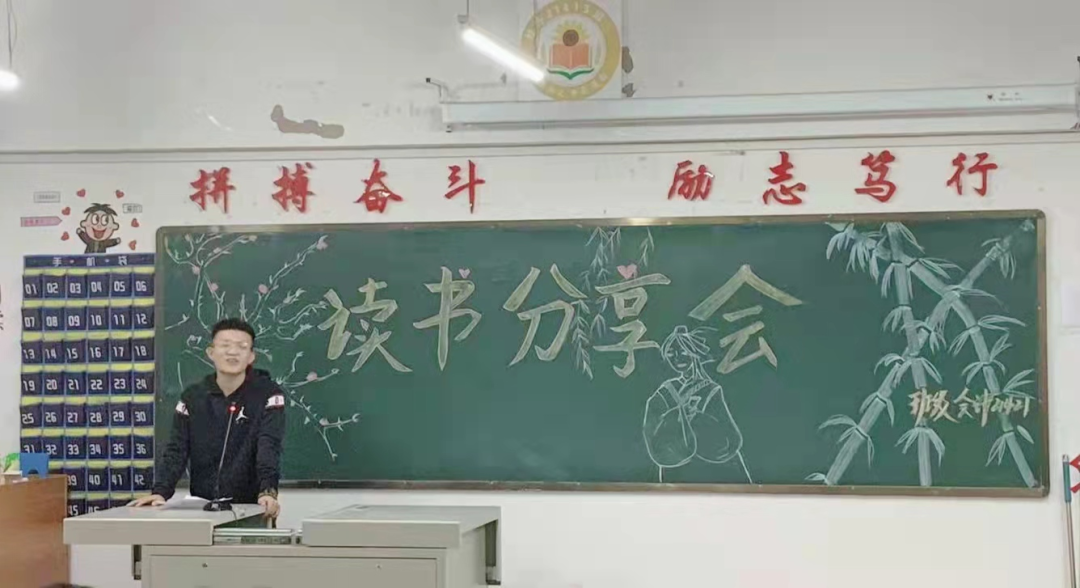 拼搏奋斗 励志笃行
读书分享会
班级 会计21421
手 机 袋
01 02 03 04 05 06
07 08 09 10 11 12
13 14 15 16 17 18
19 20 21 22 23 24
25 26 27 28 29 30
31 32 33 34 35 36
39 40 41 42
45